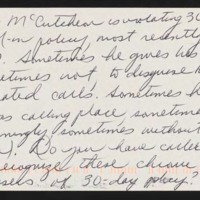 McCutcheon is violating 30
in policy, most recently
Sometimes he gives us
times not to disguise
ated cards. Sometimes h
s calling place, sometime
ingly sometimes without
). Do you have calle
recognize these
sers of 30-day policy?